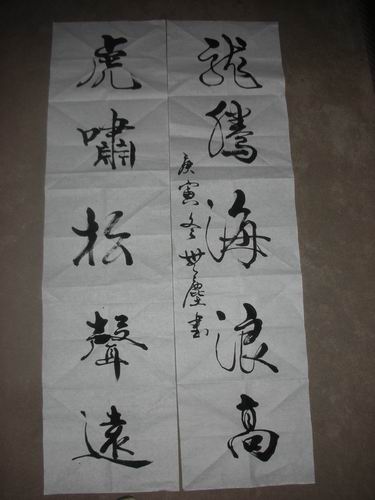 龍騰海浪高
虎嘯松聲遠
庚寅冬無塵書